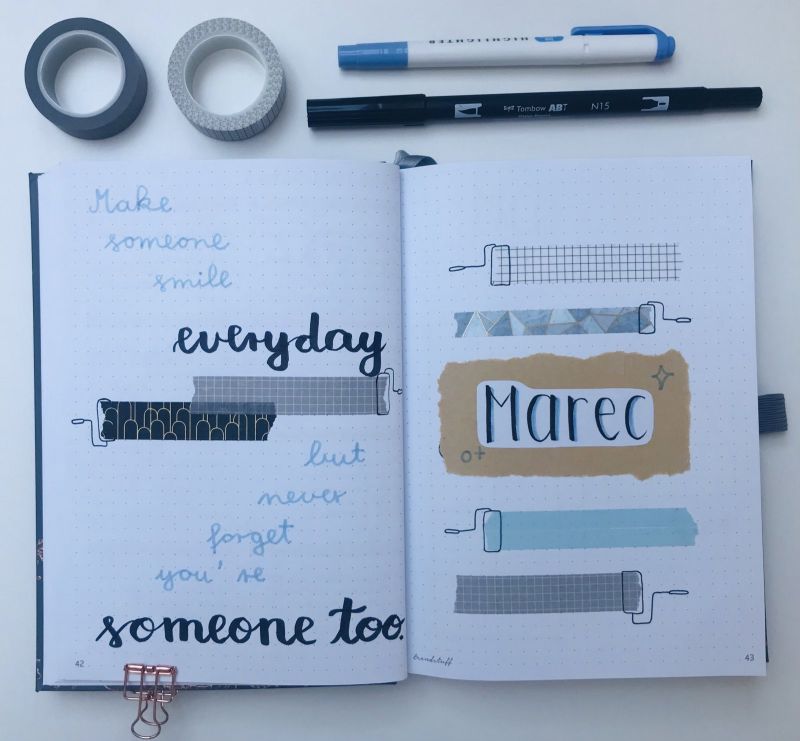 HIGHLIGHTER
Tombow ABT N15
Make
someone
smile
everyday
but
never
forget
you're
someone too.
42
Marec
43